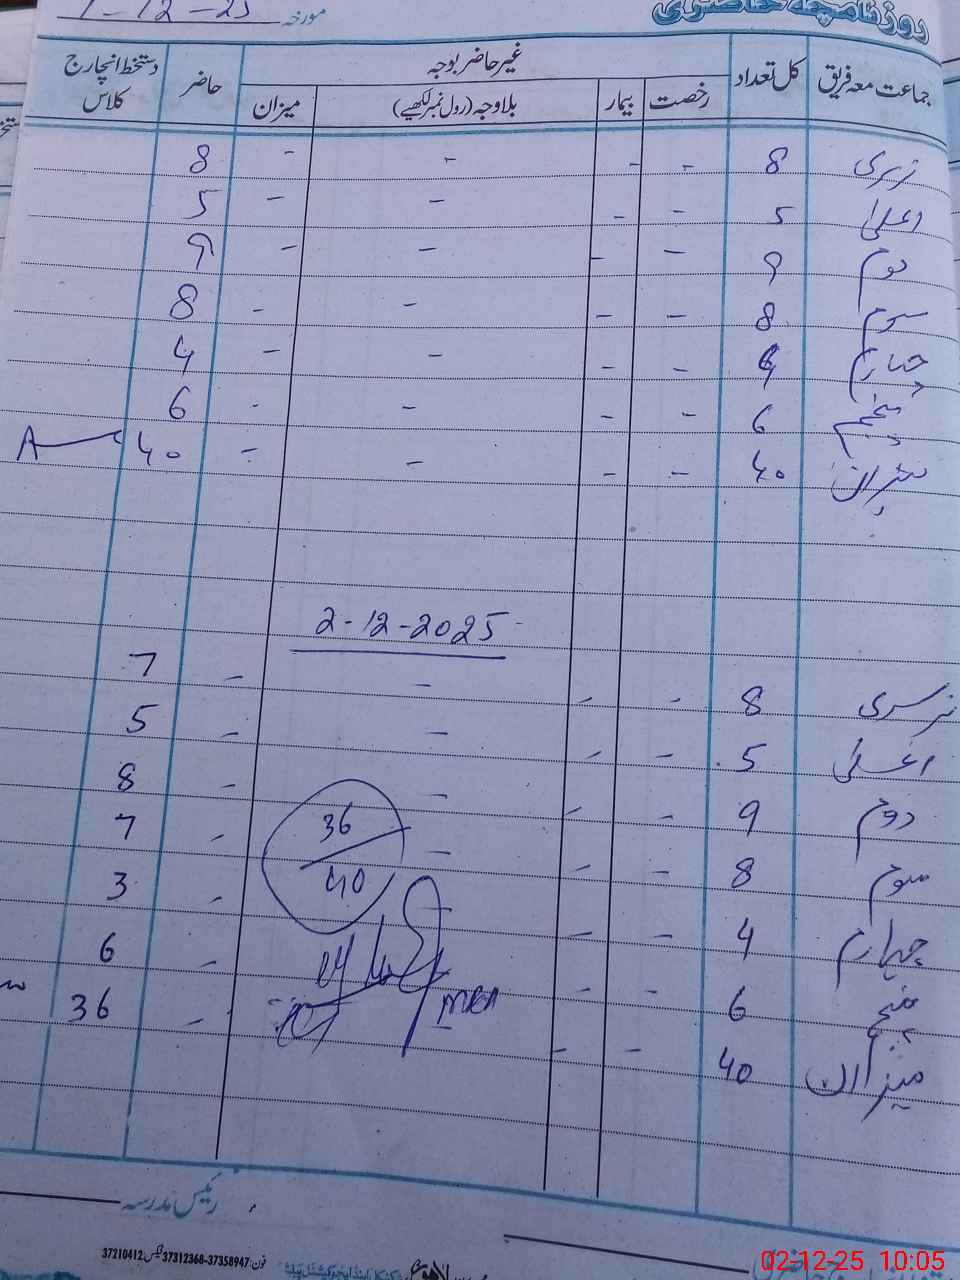 روزنامچہ حاضری
مورخہ 1-12-25
جماعت معہ فریق کل تعداد غیر حاضر بوجہ حاضر دستخط انچارج کلاس
رخصت بیمار بلاوجہ (رول نمبر لکھیے) میزان
نرسری 8 - - - - 8
اعلیٰ 5 - - - - 5
دوم 9 - - - - 9
سوم 8 - - - - 8
چہارم 4 - - - - 4
پنجم 6 - - - - 6
میزان 40 - - - - 40
2-12-2025
نرسری 8 - - - - 7
اعلیٰ 5 - - - - 5
دوم 9 - - - - 8
سوم 8 - - - - 7
چہارم 4 - - - - 3
پنجم 6 - - - - 6
میزان 40 - - - 36
36
40
رئیس مدرسہ
فون: 37358947-37312368 فیکس: 37210412
02-12-25 10:05